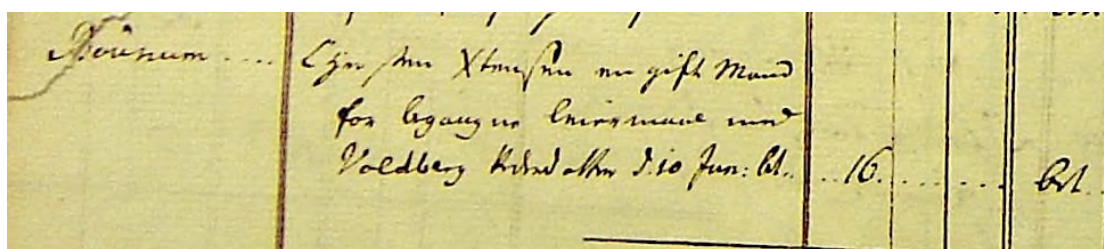 Tøurum .... Chresten Xtensen en gift Mand
for begangne leiermaal med
Voldberg Pedersdatter d. 10 Jun: bet. .. 16. ....... bet.